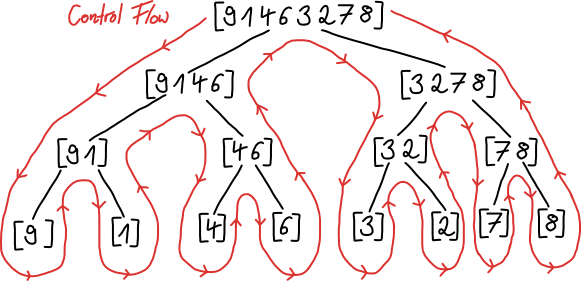 Control Flow
[9 1 4 6 3 2 7 8]
[9 1 4 6] [3 2 7 8]
[9 1] [4 6] [3 2] [7 8]
[9] [1] [4] [6] [3] [2] [7] [8]